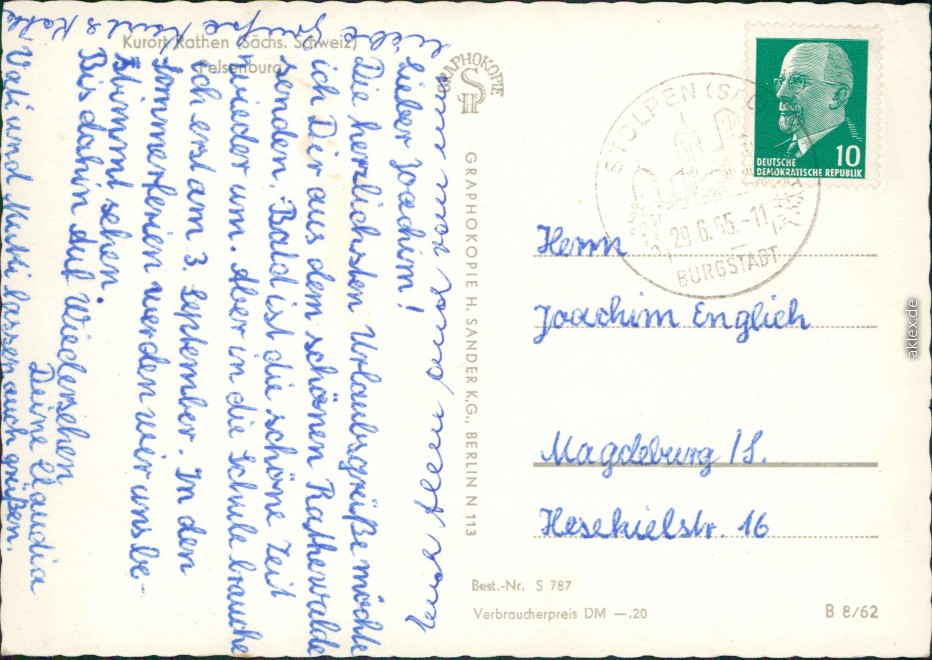 Kurort Rathen (Sächs. Schweiz)
Felsenburg
Lieber Joachim!
Die herzlichsten Urlaubsgrüße möchte
ich Dir aus dem schönen Rathewalde
senden. Bald ist die schöne Zeit
wieder um. Aber in die Schule brauche
ich erst am 3. September. In den
Sommerferien werden wir uns be-
stimmt sehen.
Bis dahin auf Wiedersehen
Deine Claudia
Vati und Mutti lassen auch grüßen.
GRAPHOKOPIE
GRAPHOKOPIE H. SANDER K.G., BERLIN N 113
STOLPEN (SACHS
29.6.65.-11
BURGSTADT
DEUTSCHE
DEMOKRATISCHE REPUBLIK
10
Herrn
Joachim Englich
Magdeburg /S.
Hesekielstr. 16
Best.-Nr. S 787
Verbraucherpreis DM —.20
B 8/62
aklex.de